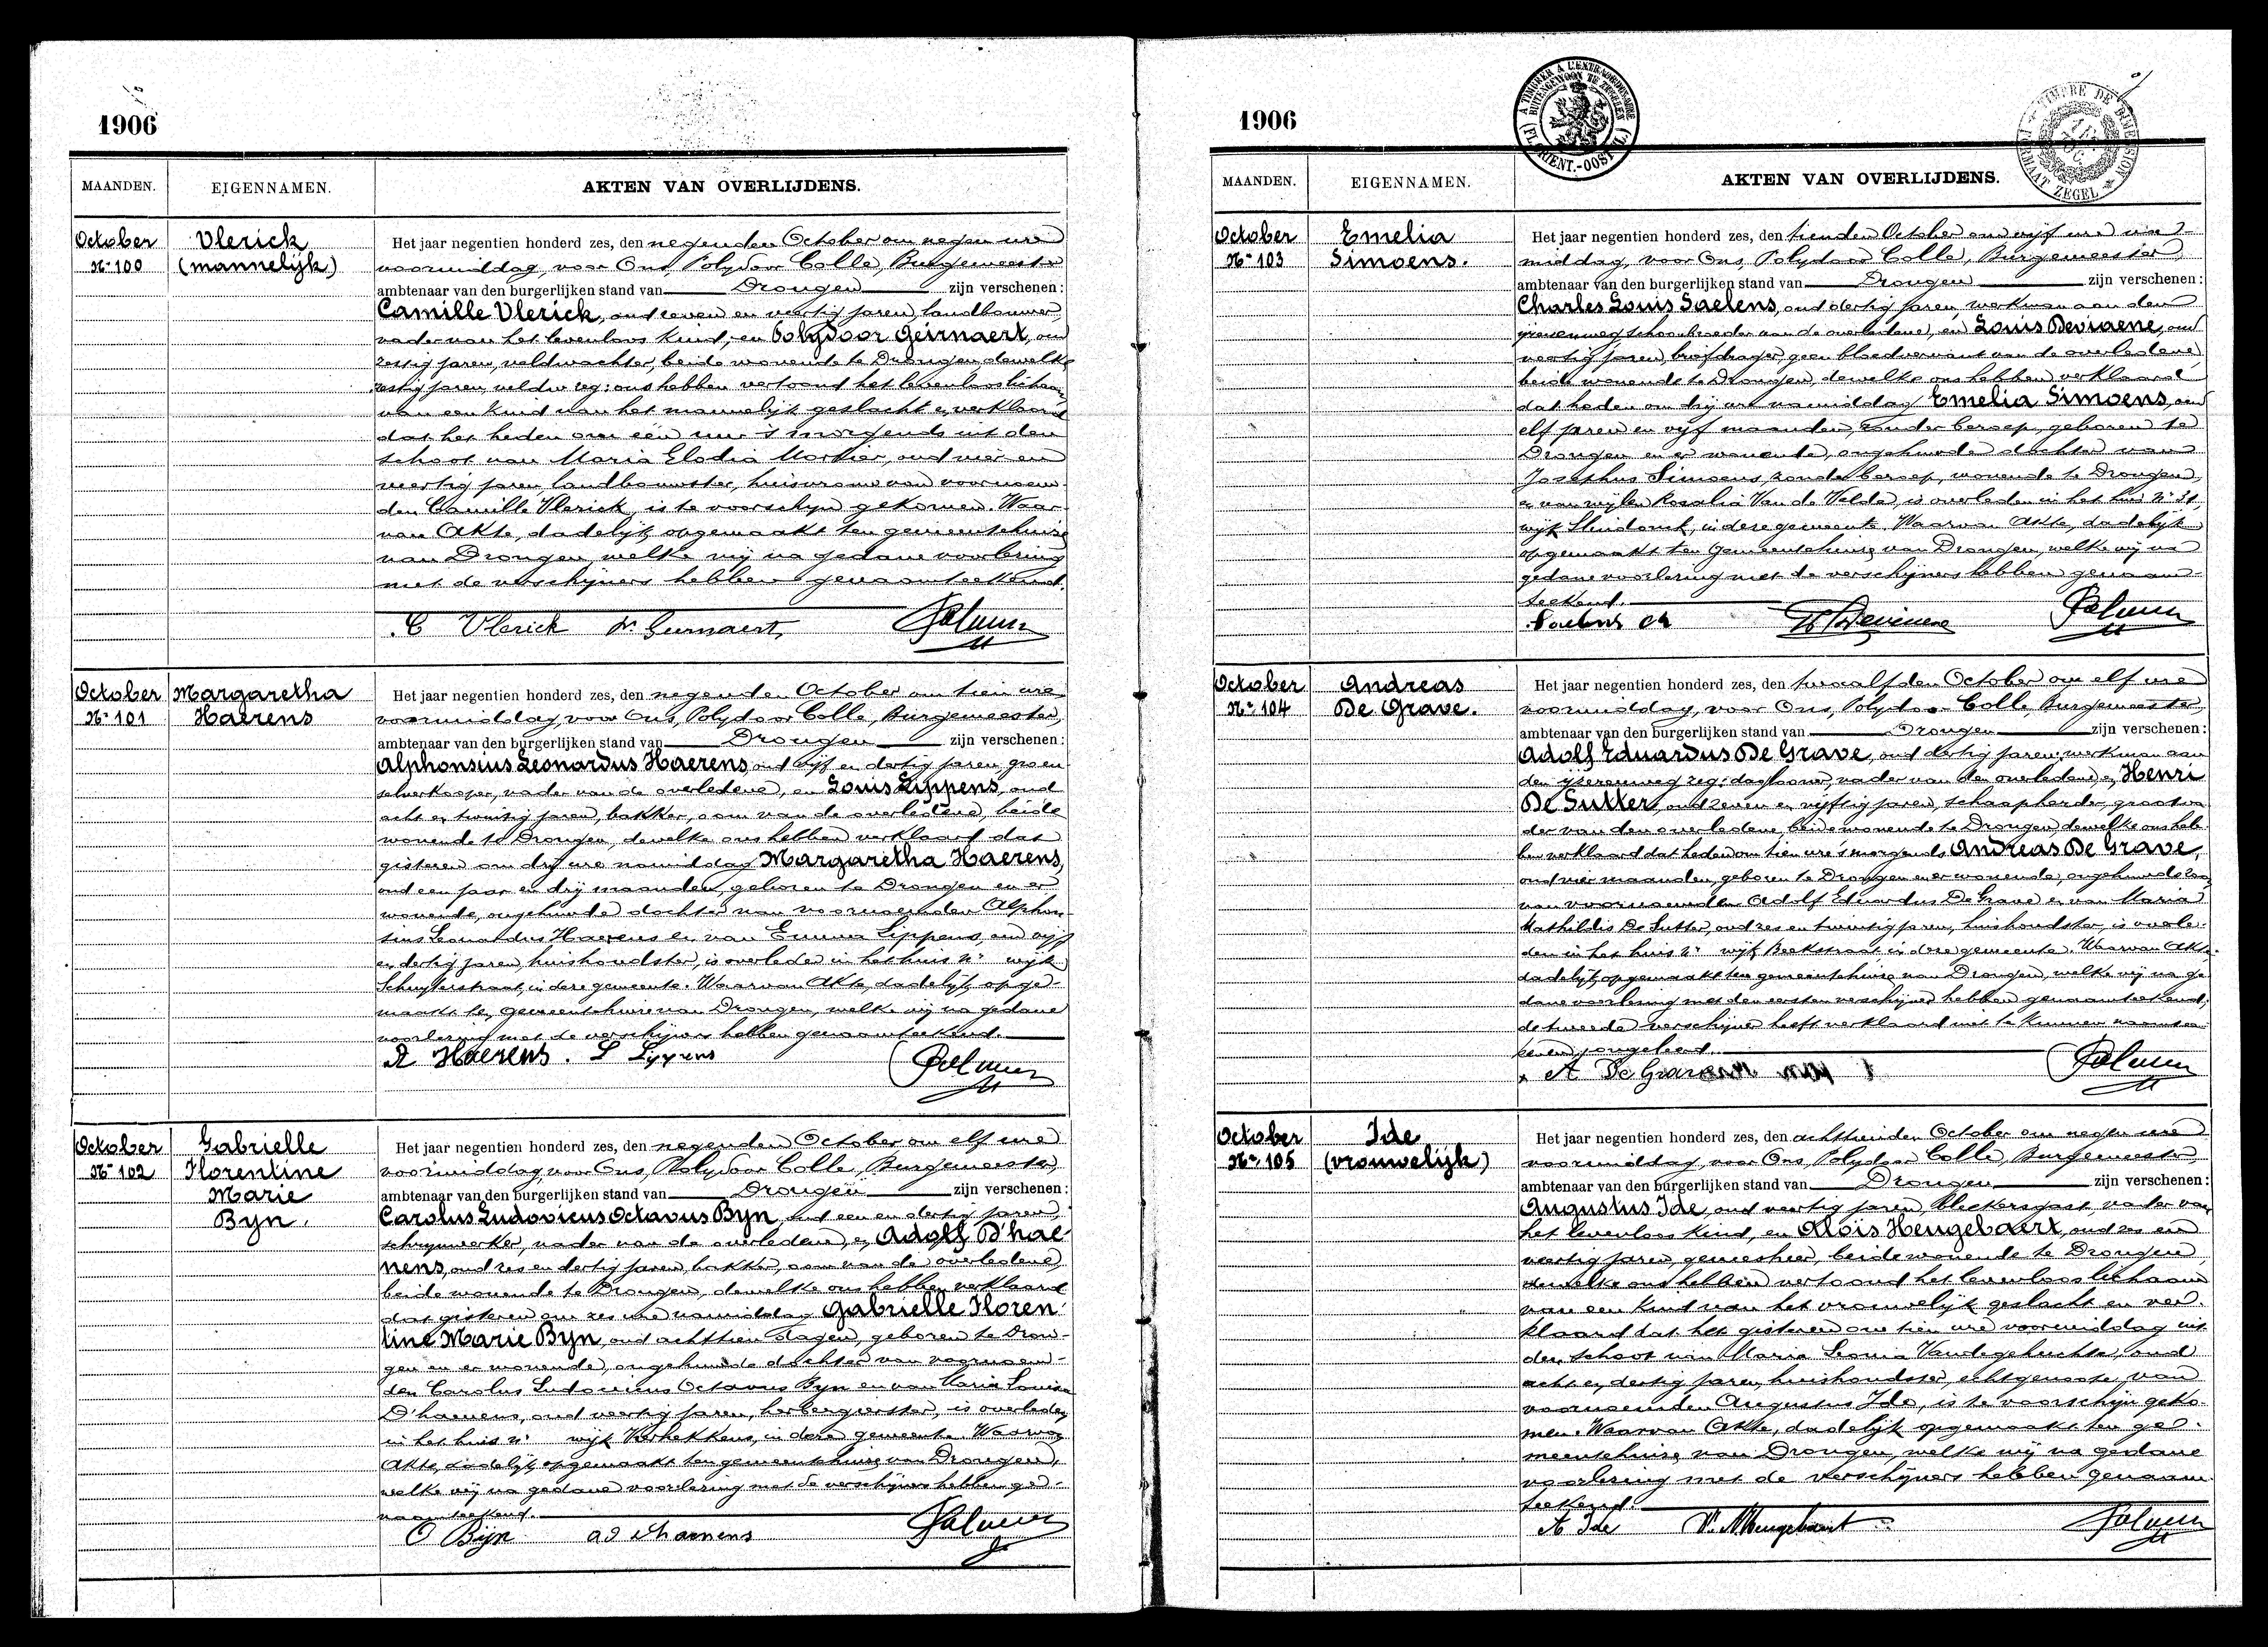 1906
MAANDEN.
EIGENNAMEN.
AKTEN VAN OVERLIJDENS.
October
Nr 100
Vlerick
(mannelijk)
Het jaar negentien honderd zes, den negenden October om negen ure
voormiddag, voor Ons, Polydoor Colle, Burgemeester
ambtenaar van den burgerlijken stand van Drongen zijn verschenen:
Camille Vlerick, oud zeven en veertig jaren, landbouwer,
vader van het levenloos kind, en Polydoor Geirnaert, oud
zestig jaren, veldwachter, beide wonende te Drongen, dewelke
ons hebben vertoond het levenloos lichaam
van een kind van het mannelijk geslacht en verklaard
dat het heden om één ure 's morgends uit den
schoot van Maria Elodia Mortier, oud vier en
veertig jaren, landbouwster, huisvrouw van voornoem-
den Camille Vlerick, is te voorschijn gekomen. Waar-
van Akte, dadelijk opgemaakt ten gemeentehuize
van Drongen, welke wij na gedane voorlezing
met de verschijners hebben genaamteekend.
C Vlerick
October
Nr 101
Margaretha
Haerens
Het jaar negentien honderd zes, den negenden October om tien ure
voormiddag, voor Ons, Polydoor Colle, Burgemeester,
ambtenaar van den burgerlijken stand van Drongen zijn verschenen:
Alphonsius Leonardus Haerens, oud vijf en dertig jaren, groen-
selverkooper, vader van de overledene, en Louis Lippens, oud
acht en twintig jaren, bakker, oom van de overledene, beide
wonende te Drongen, dewelke ons hebben verklaard dat
gisteren om drij ure namiddag Margaretha Haerens,
oud een jaar en drij maanden, geboren te Drongen en er
wonende, ongehuwde dochter van voornoemden Alphon-
sius Leonardus Haerens en van Emma Lippens, oud vijf
en dertig jaren, huishoudster, is overleden in het huis nr wijk
Schuyterstraat, in deze gemeente. Waarvan Akte, dadelijk opge-
maakt ten gemeentehuize van Drongen, welke wij na gedane
voorlezing met de verschijners hebben genaamteekend.
A Haerens. L Lippens
October
Nr 102
Gabrielle
Florentine
Marie
Byn.
Het jaar negentien honderd zes, den negenden October om elf ure
voormiddag, voor Ons, Polydoor Colle, Burgemeester,
ambtenaar van den burgerlijken stand van Drongen zijn verschenen:
Carolus Ludovicus Octavus Byn, oud een en dertig jaren,
schrijnwerker, vader van de overledene, en Adolf D'hae-
nens, oud zes en dertig jaren, bakker, oom van de overledene,
beide wonende te Drongen, dewelke ons hebben verklaard
dat gisteren om zes ure namiddag Gabrielle Floren-
tine Marie Byn, oud achttien dagen, geboren te Dron-
gen en er wonende, ongehuwde dochter van voornoem-
den Carolus Ludovicus Octavus Byn en van Maria Louisa
D'haenens, oud veertig jaren, herbergierster, is overleden
in het huis nr wijk Varhekkens, in deze gemeente. Waarvan
Akte, dadelijk opgemaakt ten gemeentehuize van Drongen,
welke wij na gedane voorlezing met de verschijners hebben ge-
naamteekend.
O Bijn ad d'haenens
1906
MAANDEN.
EIGENNAMEN.
AKTEN VAN OVERLIJDENS.
October
Nr 103
Emelia
Simoens.
Het jaar negentien honderd zes, den tienden October om vijf ure na-
middag, voor Ons, Polydoor Colle, Burgemeester
ambtenaar van den burgerlijken stand van Drongen zijn verschenen:
Charles Louis Saelens, oud dertig jaren, werkman aan den
ijzerenweg, schoonbroeder van de overledene, en Louis Deviaene, oud
veertig jaren, briefdrager, geen bloedverwant van de overledene
beide wonende te Drongen, dewelke ons hebben verklaard
dat heden om drij ure namiddag Emelia Simoens, oud
elf jaren en vijf maanden, zonder beroep, geboren te
Drongen en er wonende, ongehuwde dochter van
Josephus Simoens, zonder beroep, wonende te Drongen,
en van wijlen Rosalia Van de Velde, is overleden in het huis nr 31,
wijk Sleidonck, in deze gemeente. Waarvan Akte, dadelijk
opgemaakt ten gemeentehuize van Drongen, welke wij na
gedane voorlezing met de verschijners hebben genaam-
teekend.
Saelens ch
October
Nr 104
Andreas
De Grave.
Het jaar negentien honderd zes, den twaalfden October om elf ure
voormiddag, voor Ons, Polydoor Colle, Burgemeester,
ambtenaar van den burgerlijken stand van Drongen zijn verschenen:
Adolf Eduardus De Grave, oud dertig jaren, werkman aan
den ijzerenweg zeg: daglooner, vader van den overledene, en Henri
De Sutter, oud zeven en vijftig jaren, schaapherder, grootva-
der van den overledene, beide wonende te Drongen, dewelke ons heb-
ben verklaard dat heden om tien ure 's morgends Andreas De Grave,
oud vier maanden, geboren te Drongen en er wonende, ongehuwde zoon
van voornoemden Adolf Eduardus De Grave en van Maria
Mathildis De Sutter, oud zes en twintig jaren, huishoudster, is overle-
den in het huis nr wijk Beekstraat in deze gemeente. Waarvan Akte,
dadelijk opgemaakt ten gemeentehuize van Drongen, welke wij na ge-
dane voorlezing met den eersten verschijner hebben genaamteekend;
de tweede verschijner heeft verklaard niet te kunnen naamtee-
kenen, ongeleerd.
A De Grave
October
Nr 105
Ide
(vrouwelijk)
Het jaar negentien honderd zes, den achttienden October om negen ure
voormiddag, voor Ons, Polydoor Colle, Burgemeester,
ambtenaar van den burgerlijken stand van Drongen zijn verschenen:
Augustus Ide, oud veertig jaren, bleekersgast, vader van
het levenloos kind, en Alois Heugebaert, oud zes en
veertig jaren, geneesheer, beide wonende te Drongen,
dewelke ons hebben vertoond het levenloos lichaam
van een kind van het vrouwelijk geslacht en ver-
klaard dat het gisteren om tien ure voormiddag uit
den schoot van Maria Leonia Vandegehuchte, oud
acht en dertig jaren, huishoudster, echtgenoote van
voornoemden Augustus Ide, is te voorschijn geko-
men. Waarvan Akte, dadelijk opgemaakt ten ge-
meentehuize van Drongen, welke wij na gedane
voorlezing met de verschijners hebben genaam-
teekend.
A Ide